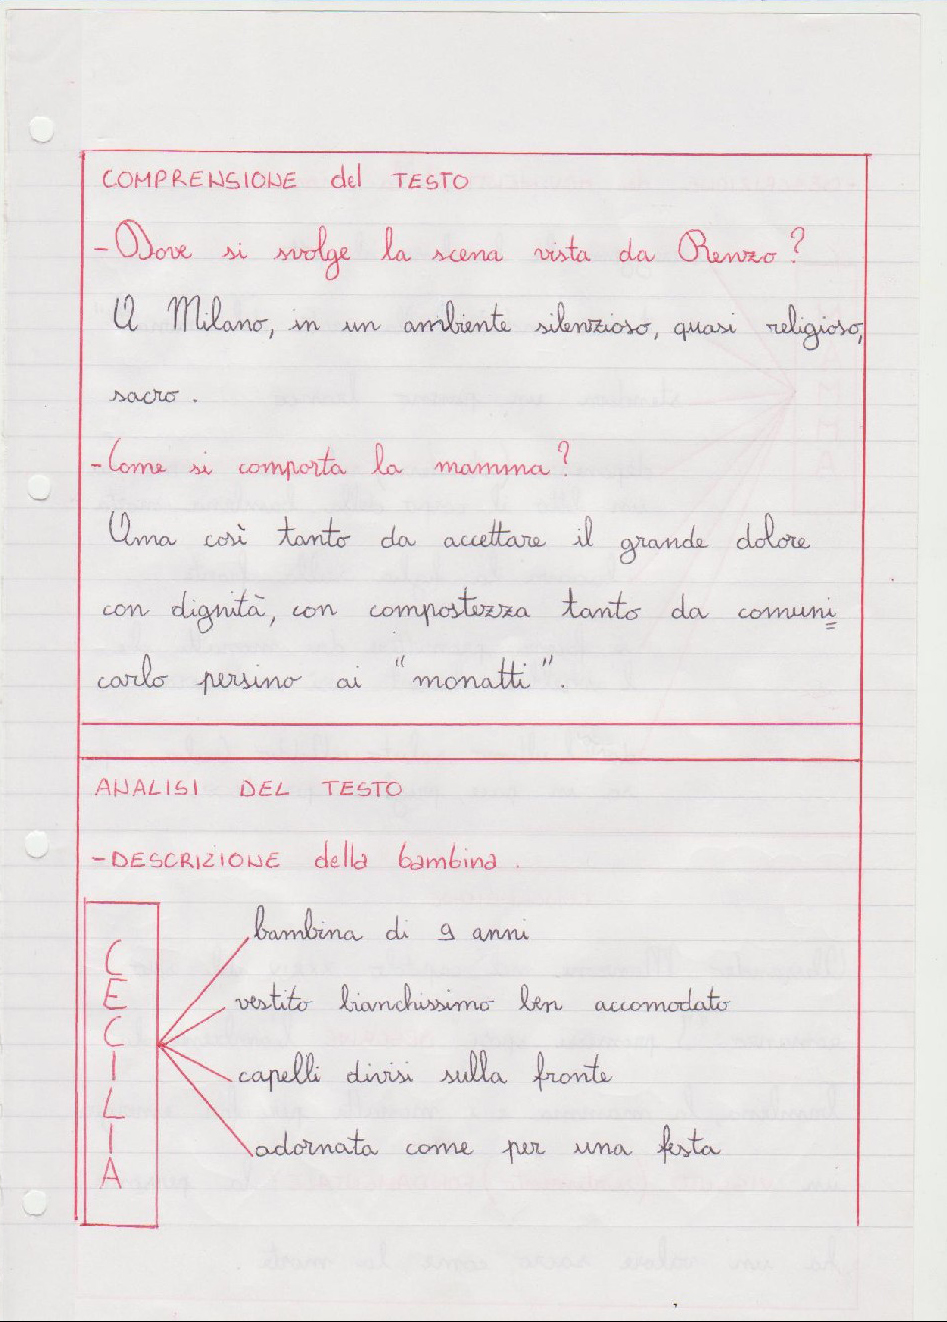 COMPRENSIONE del TESTO
- Dove si svolge la scena vista da Renzo?
A Milano, in un ambiente silenzioso, quasi religioso,
sacro.
- Come si comporta la mamma?
Ama così tanto da accettare il grande dolore
con dignità, con compostezza tanto da comuni=
carlo persino ai "monatti".
ANALISI DEL TESTO
- DESCRIZIONE della bambina.
CECILIA
bambina di 9 anni
vestito bianchissimo ben accomodato
capelli divisi sulla fronte
adornata come per una festa